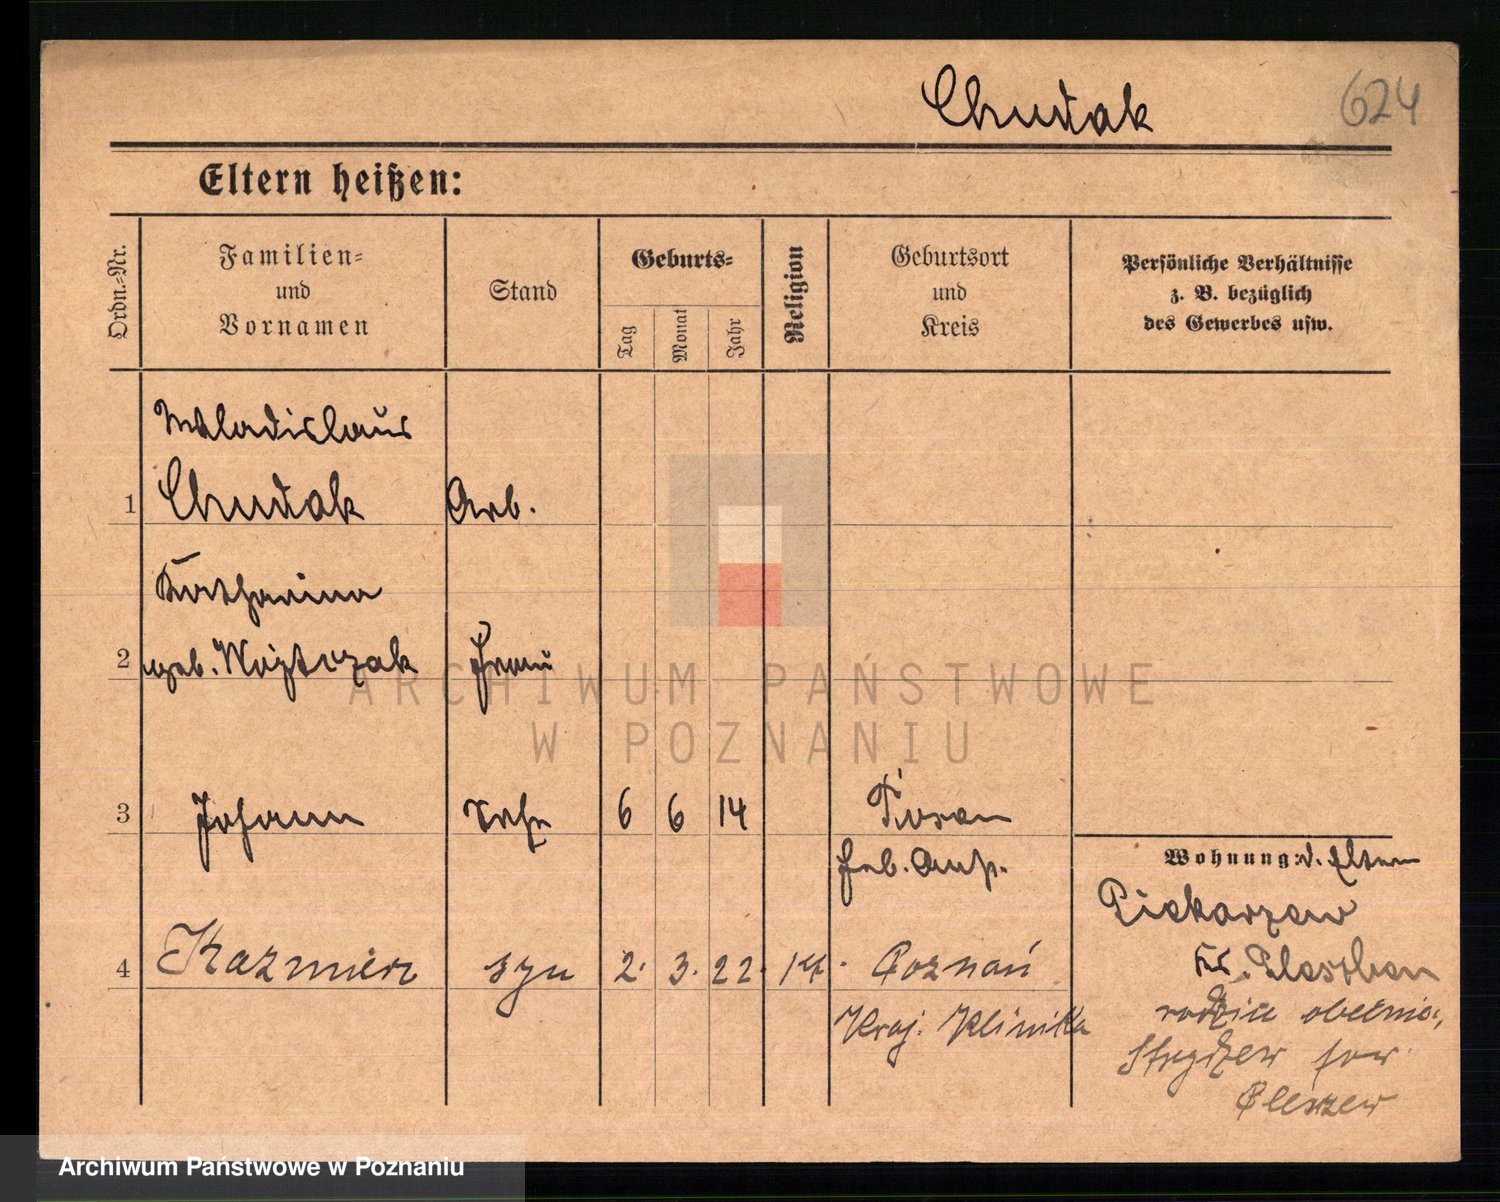 Chudak 624
Eltern heißen:
Ordn.-Nr.
Familien-
und
Vornamen
Stand
Geburts-
Tag Monat Jahr
Religion
Geburtsort
und
Kreis
Persönliche Verhältnisse
z. B. bezüglich
des Gewerbes usw.
Wladislaus
1 Chudak Arb.
Katharina
2 geb. Wojtczak Frau
ARCHIWUM PAŃSTWOWE
W POZNANIU
3 Johann 6 6 14 Posen
Wohnung: d. Eltern
Piekarzew
4 Kazmierz syn 2. 3. 22. Poznań
Kr. Pleschen
Kraj. Klinika
rodzice obecnie
pow.
Pleszew
Archiwum Państwowe w Poznaniu